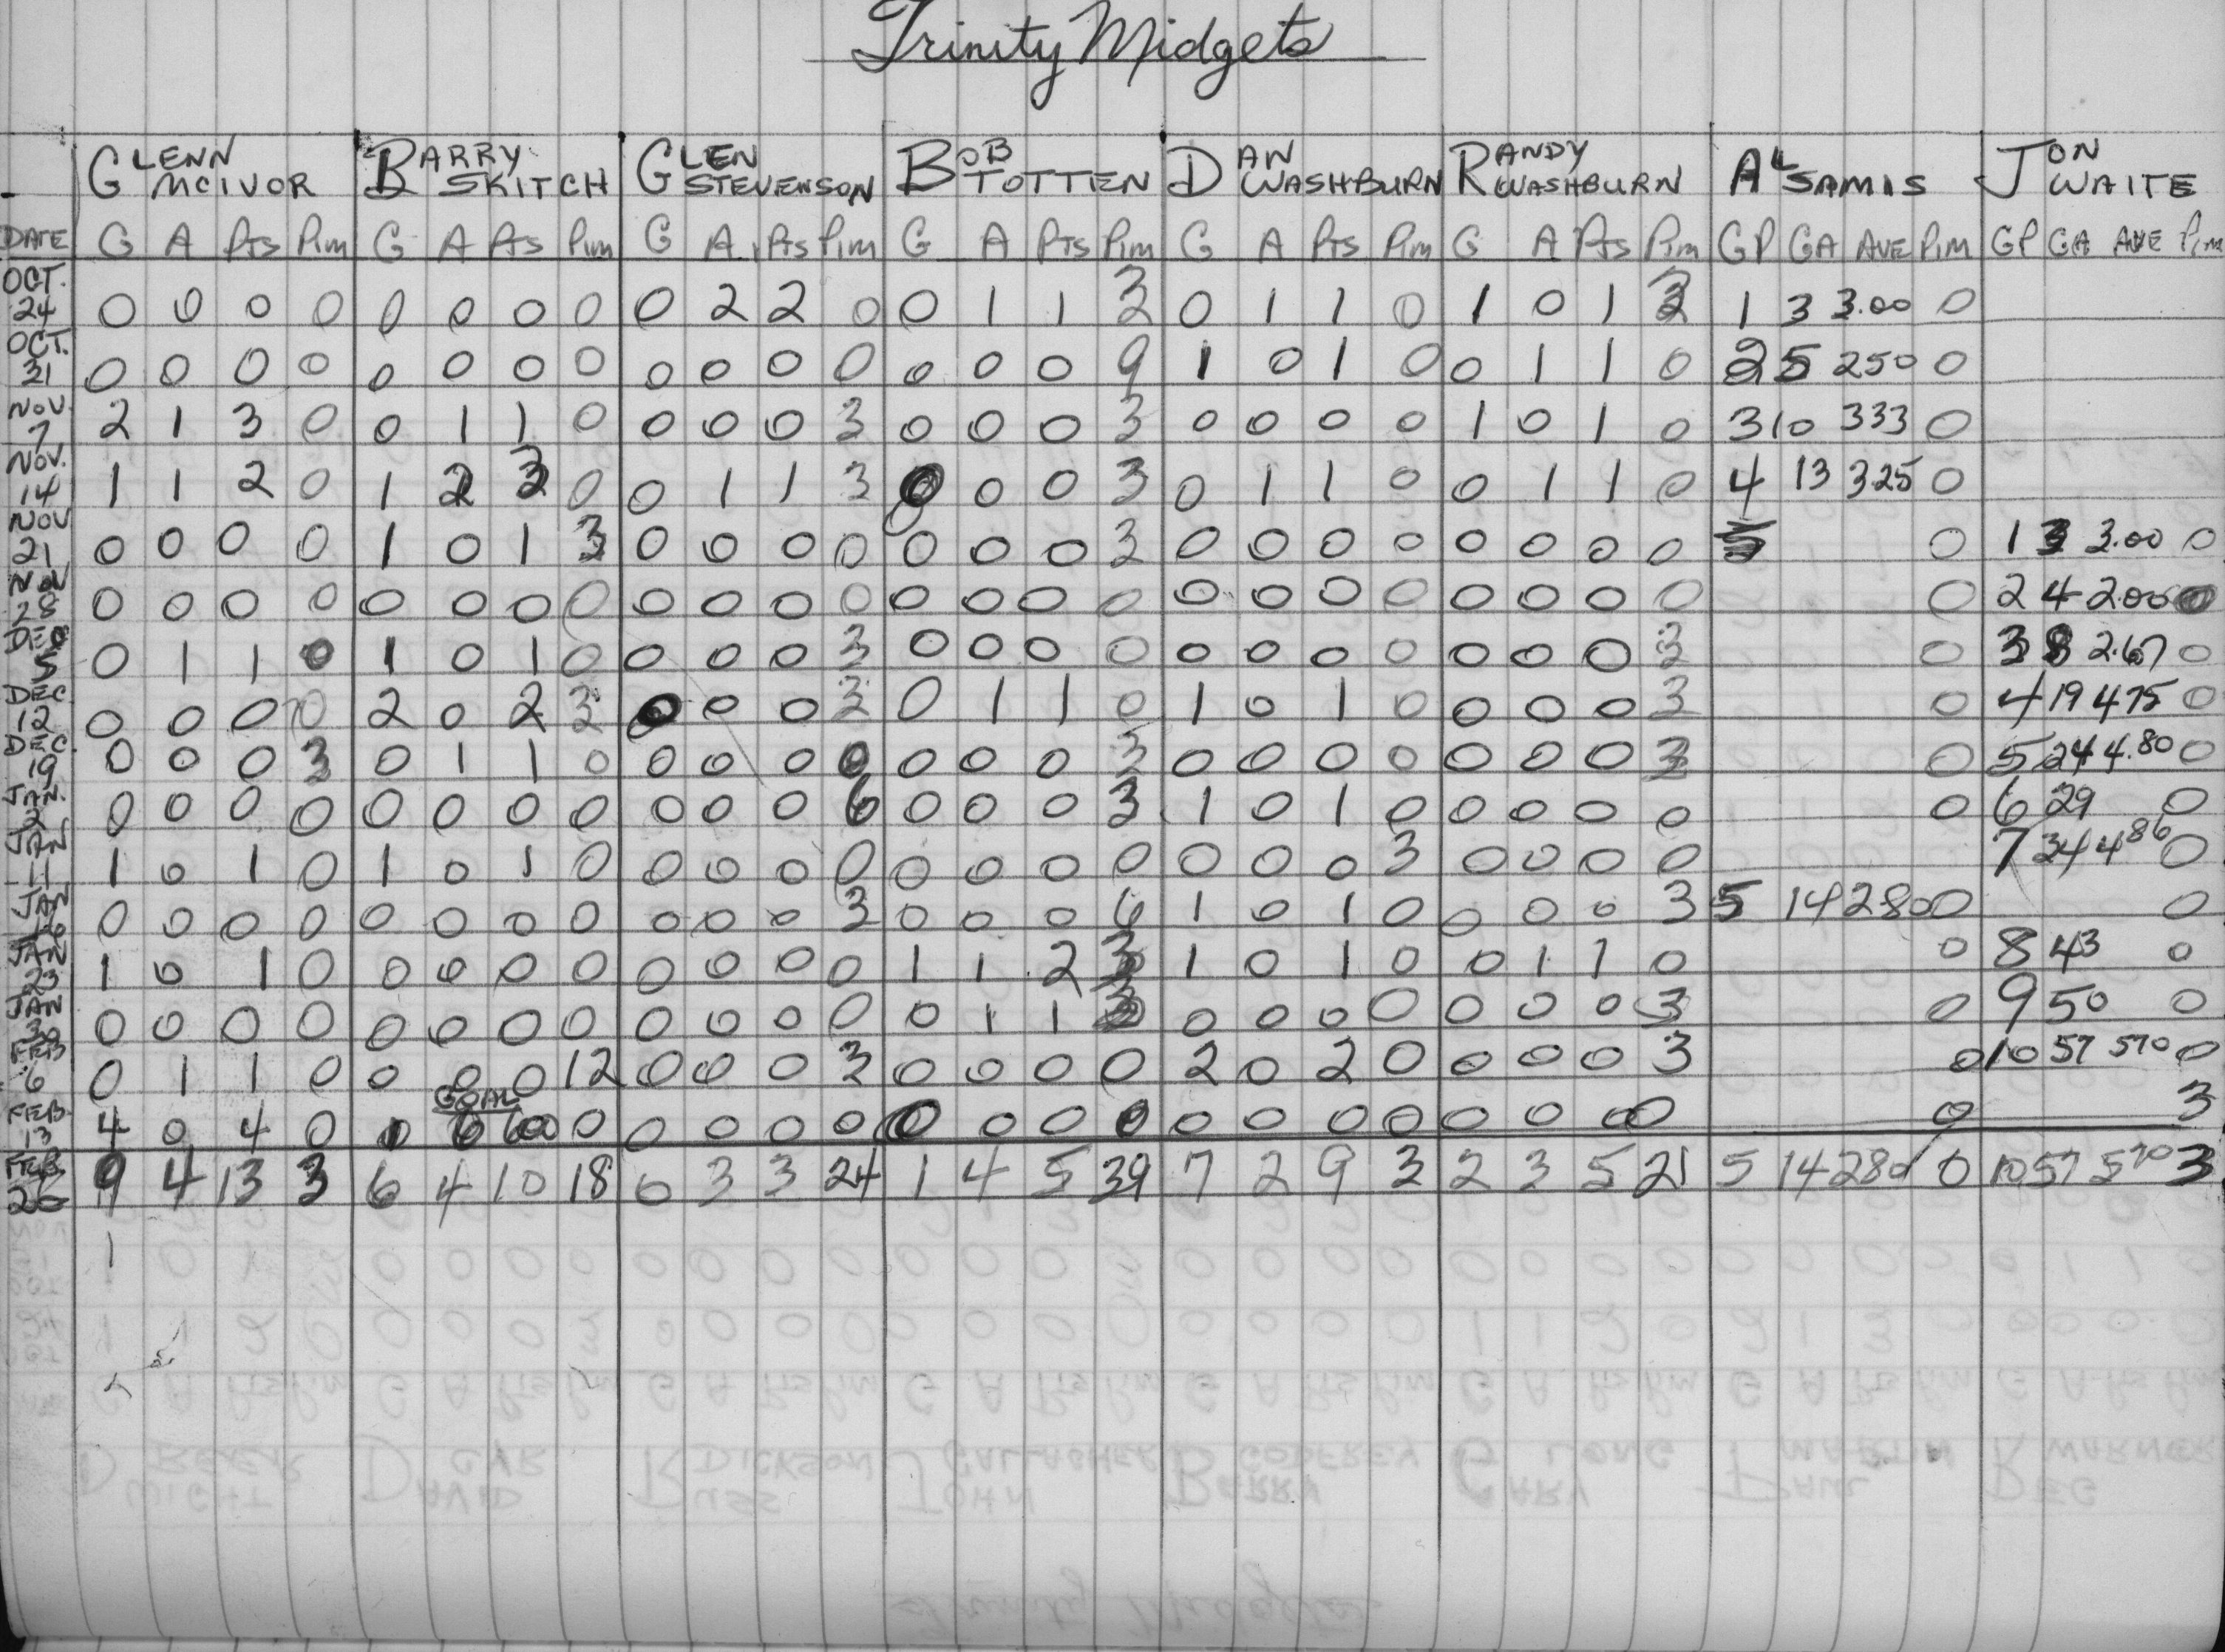 Trinity Midgets
GLENN MCIVOR BARRY SKITCH GLEN STEVENSON BOB TOTTEN DAN WASHBURN RANDY WASHBURN AL SAMIS JON WAITE
DATE G A Pts Pim G A Pts Pim G A Pts Pim G A Pts Pim G A Pts Pim G A Pts Pim GP GA AVE Pim GP GA AVE Pim
OCT. 24 0 0 0 0 0 0 0 0 0 2 2 0 0 1 1 3 0 1 1 0 1 0 1 3 1 3 3.00 0
OCT. 31 0 0 0 0 0 0 0 0 0 0 0 0 0 0 0 9 1 0 1 0 0 1 1 0 2 5 250 0
NOV. 7 2 1 3 0 0 1 1 0 0 0 0 3 0 0 0 3 0 0 0 0 1 0 1 0 3 10 333 0
NOV. 14 1 1 2 0 1 2 3 0 0 1 1 3 0 0 0 3 0 1 1 0 0 1 1 0 4 13 325 0
NOV 21 0 0 0 0 1 0 1 3 0 0 0 0 0 0 0 3 0 0 0 0 0 0 0 0 0 1 3 3.00 0
NOV 28 0 0 0 0 0 0 0 0 0 0 0 0 0 0 0 0 0 0 0 0 0 0 0 0 0 2 4 2.00 0
DEC 5 0 1 1 0 1 0 1 0 0 0 0 3 0 0 0 0 0 0 0 0 0 0 0 3 0 3 8 2.67 0
DEC 12 0 0 0 0 2 0 2 3 0 0 0 3 0 1 1 0 1 0 1 0 0 0 0 3 0 4 19 475 0
DEC 19 0 0 0 3 0 1 1 0 0 0 0 0 0 0 0 3 0 0 0 0 0 0 0 3 0 5 24 4.80 0
JAN. 2 0 0 0 0 0 0 0 0 0 0 0 6 0 0 0 3 1 0 1 0 0 0 0 0 0 6 29 0
JAN 11 1 0 1 0 1 0 1 0 0 0 0 0 0 0 0 0 0 0 0 3 0 0 0 0 7 34 4 86 0
JAN 16 0 0 0 0 0 0 0 0 0 0 0 3 0 0 0 6 1 0 1 0 0 0 0 3 5 14 280 0 0
JAN 23 1 0 1 0 0 0 0 0 0 0 0 0 1 1 2 3 1 0 1 0 0 1 1 0 0 8 43 0
JAN 30 0 0 0 0 0 0 0 0 0 0 0 0 0 1 1 3 0 0 0 0 0 0 0 3 0 9 50 0
FEB 6 0 1 1 0 0 0 0 12 0 0 0 3 0 0 0 0 2 0 2 0 0 0 0 3 0 10 57 570 0
GOAL
FEB. 13 4 0 4 0 0 0 0 0 0 0 0 0 0 0 0 0 0 0 0 0 0 0 3
FEB. 26 9 4 13 3 6 4 10 18 0 3 3 24 1 4 5 39 7 2 9 3 2 3 5 21 5 14 280 0 10 57 570 3
1